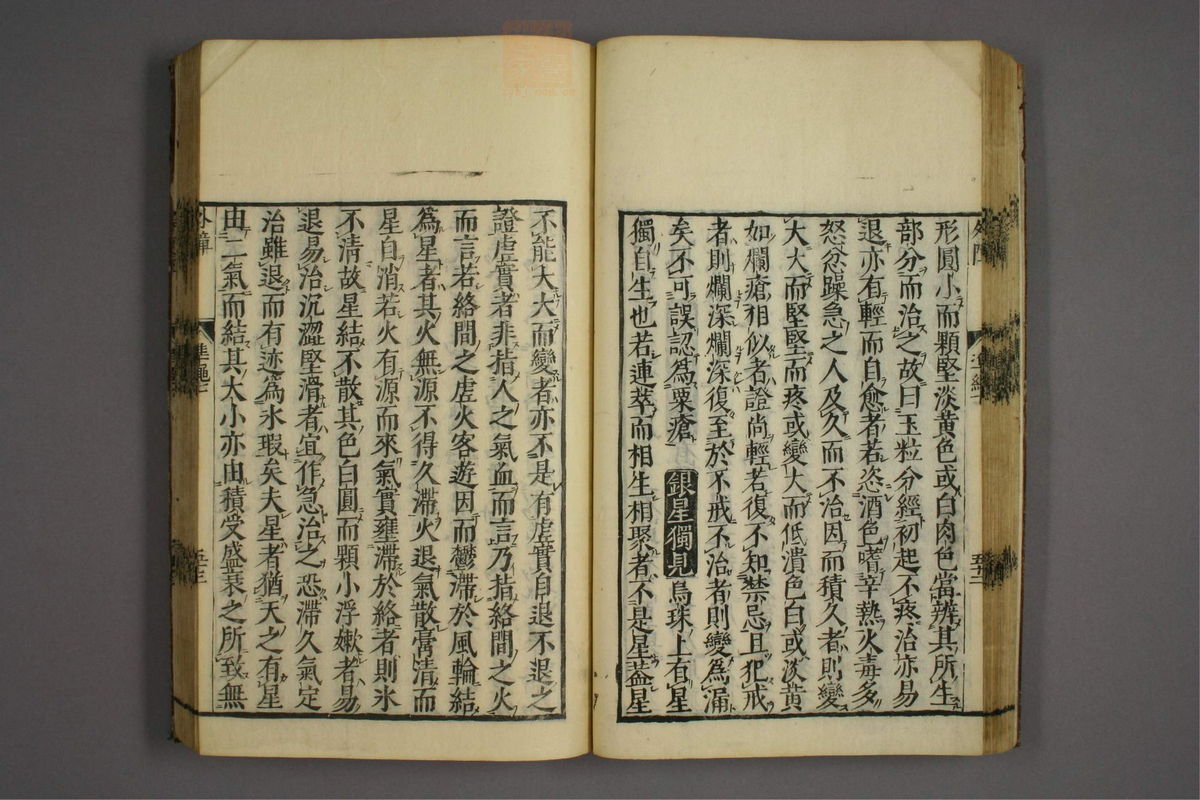 形圓小而顆堅淡黄色或白肉色當辨其所生
部分而治之故曰玉粒分經初起不疼治亦易
退亦有輕而自愈者若恣酒色嗜辛熱火毒多
怒忿躁急之人及久而不治因而積久者則變
大大而堅堅而疼或變大而低潰色白或淡黄
如爛瘡相似者證尚輕若復不知禁忌且犯戒
者則爛深爛深復至於不戒不治者則變為漏
矣不可誤認為粟瘡 銀星獨見 烏珠上有星
獨自生也若連萃而相生相聚者不是星蓋星
不能大大而變者亦不是有虚實自退不退之
證虚實者非指人之氣血而言乃指絡間之火
而言若絡間之虚火客遊因而鬱滯於風輪結
為星者其火無源不得久滯火退氣散膏清而
星自消若火有源而來氣實壅滯於絡者則氷
不清故星結不散其色白圓而顆小浮嫰者易
退易治沉澀堅滑者宜作急治之恐滯久氣定
治雖退而有迹為氷瑕矣夫星者猶天之有星
由二氣而結其大小亦由積受盛衰之所致無
外障
準繩一
五十三